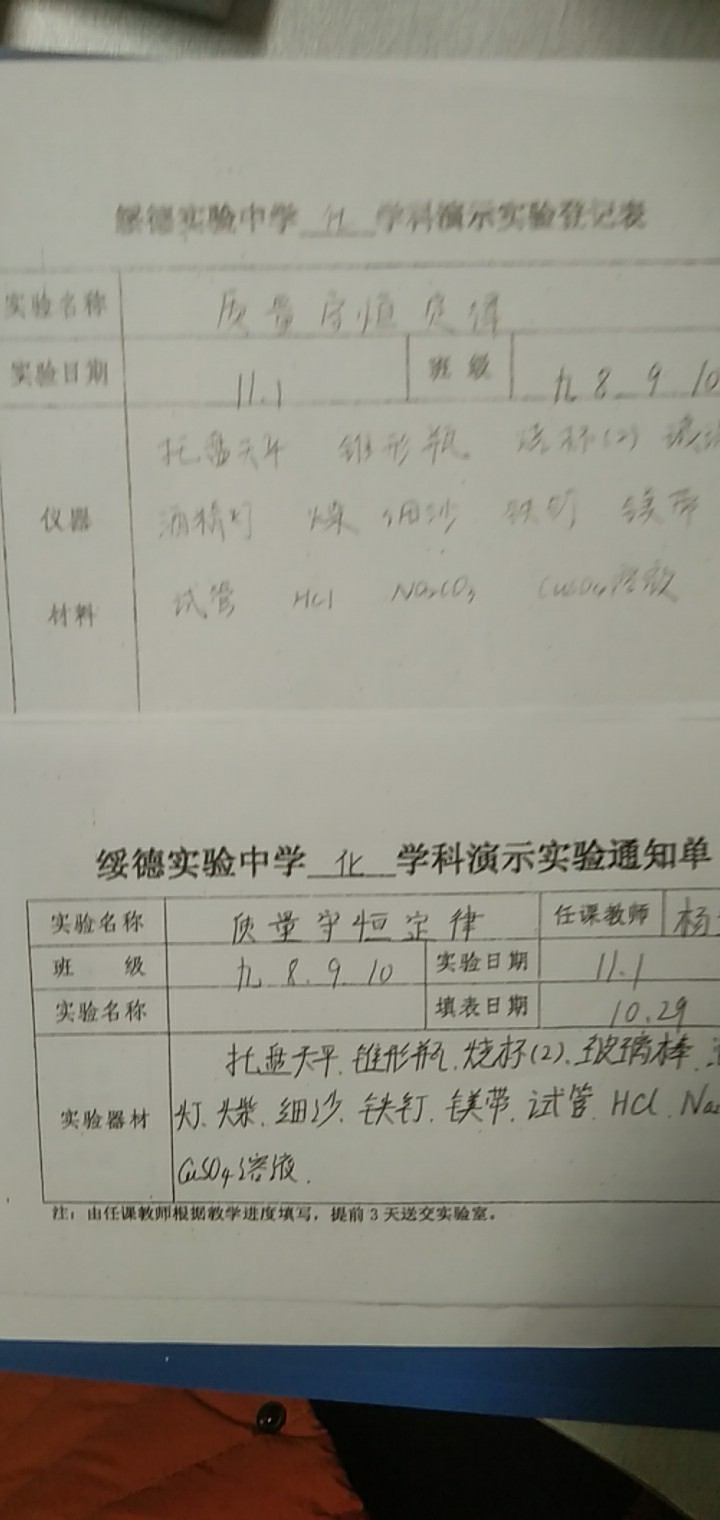 绥德实验中学 化 学科演示实验登记表
实验名称 质量守恒定律
实验日期 11.1 班级 九 8 9 10
托盘天平 锥形瓶 烧杯(2) 玻璃
仪器 酒精灯 煤 细沙 铁钉 镁带
材料 试管 HCl Na₂CO₃ CuSO₄溶液
绥德实验中学 化 学科演示实验通知单
实验名称 质量守恒定律 任课教师 杨
班 级 九 8. 9. 10 实验日期 11.1
实验名称 填表日期 10.29
托盘天平. 锥形瓶. 烧杯(2). 玻璃棒.
实验器材 灯. 细沙. 铁钉. 镁带. 试管. HCl. Na₂
CuSO₄溶液.
注：由任课教师根据教学进度填写，提前3天送交实验室。